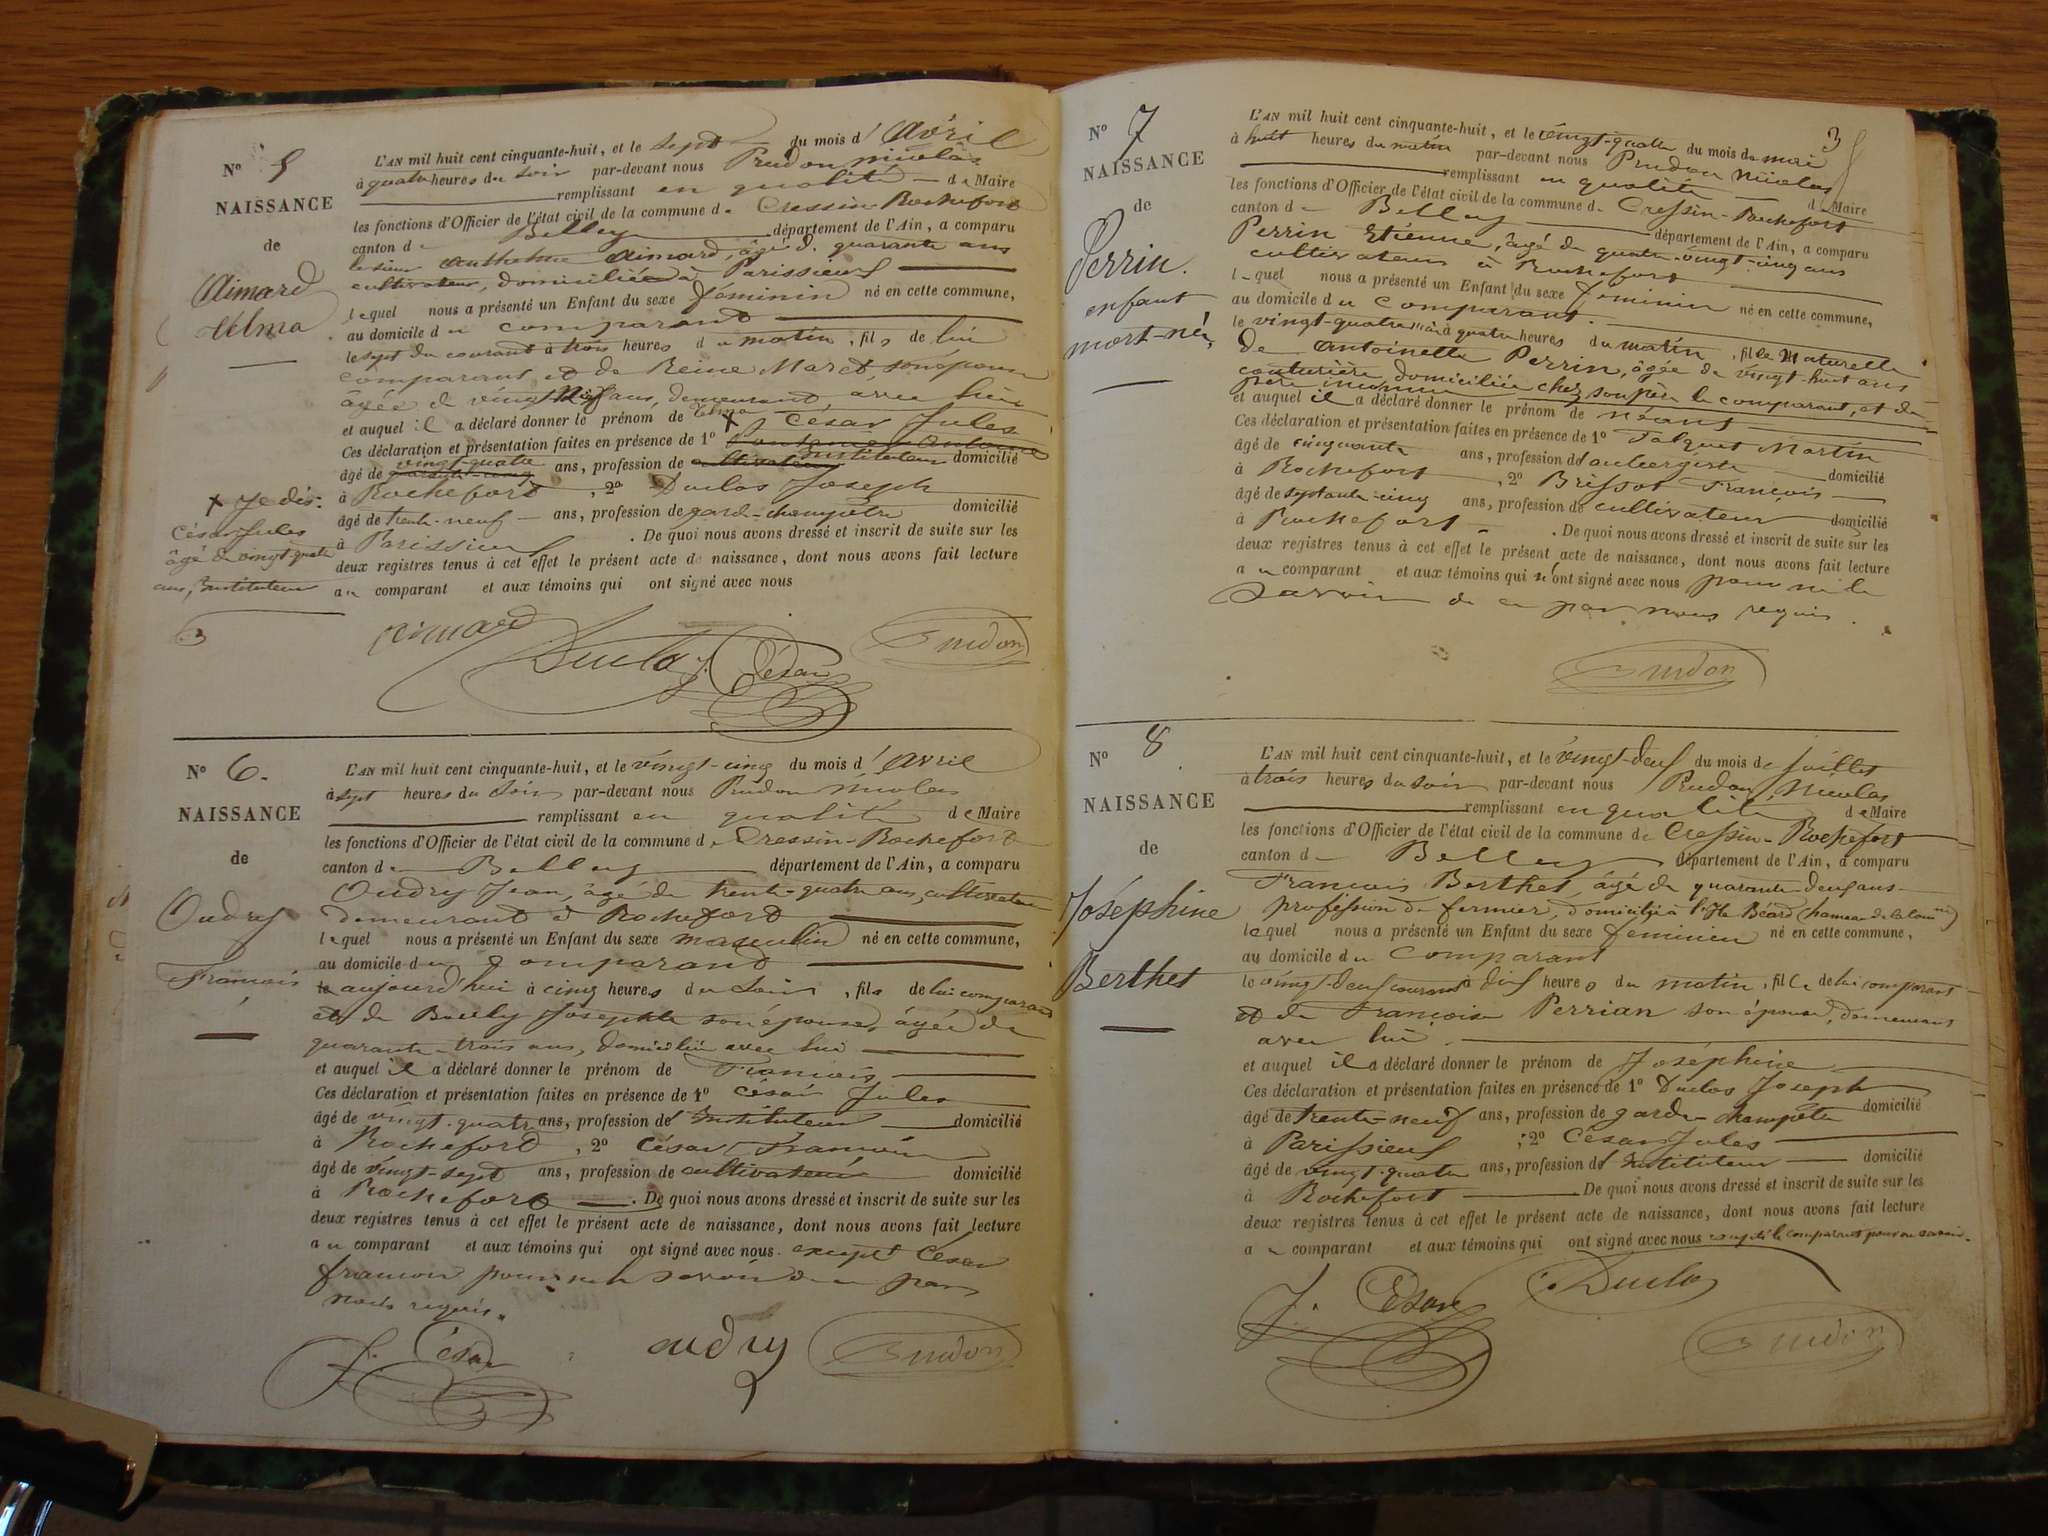 N° 5
NAISSANCE
de
Aimard
Zélma
L'AN mil huit cent cinquante-huit, et le sept du mois d'Avril
à quatre heures du soir par-devant nous Prudon nicolas
remplissant en qualité de Maire
les fonctions d'Officier de l'état civil de la commune de Cressin-Rochefort
canton de Belley département de l'Ain, a comparu
le sieur Anthelme Aimard, âgé de quarante ans
cultivateur, domicilié à Parissieu
lequel nous a présenté un Enfant du sexe féminin né en cette commune,
au domicile du comparant
le sept du courant à trois heures du matin, fils de lui
comparant et de Reine Maret, son épouse
âgée de vingt neuf ans, demeurant avec lui
et auquel il a déclaré donner le prénom de Zélma
Ces déclaration et présentation faites en présence de 1° + César Jules
âgé de vingt-quatre ans, profession de cultivateur Instituteur domicilié
à Rochefort, 2° Duclos Joseph
âgé de trente-neuf ans, profession de garde-champêtre domicilié
à Parissieu. De quoi nous avons dressé et inscrit de suite sur les
deux registres tenus à cet effet le présent acte de naissance, dont nous avons fait lecture
au comparant et aux témoins qui ont signé avec nous
+ Je dis:
César Jules
âgé de vingt quatre
ans, Instituteur
Aimard Duclos J. César Prudon
N° 6.
NAISSANCE
de
Oudry
François
L'AN mil huit cent cinquante-huit, et le vingt-cinq du mois d'Avril
à sept heures du soir par-devant nous Prudon nicolas
remplissant en qualité de Maire
les fonctions d'Officier de l'état civil de la commune de Cressin-Rochefort
canton de Belley département de l'Ain, a comparu
Oudry Jean, âgé de trente-quatre ans, cultivateur
demeurant à Rochefort
lequel nous a présenté un Enfant du sexe masculin né en cette commune,
au domicile du comparant
le aujourd'hui à cinq heures du soir, fils de lui comparant
et de Josephte son épouse, âgée de
quarante-trois ans, domiciliée avec lui
et auquel il a déclaré donner le prénom de François
Ces déclaration et présentation faites en présence de 1° César Jules
âgé de vingt-quatre ans, profession d'Instituteur domicilié
à Rochefort, 2° César François
âgé de vingt-sept ans, profession de cultivateur domicilié
à Rochefort. De quoi nous avons dressé et inscrit de suite sur les
deux registres tenus à cet effet le présent acte de naissance, dont nous avons fait lecture
au comparant et aux témoins qui ont signé avec nous excepté César
françois pour ne le savoir de ce par
nous requis.
J. César oudry Prudon
3
N° 7
NAISSANCE
de
Perrin.
enfant
mort-né,
L'AN mil huit cent cinquante-huit, et le vingt-quatre du mois de mai
à huit heures du matin par-devant nous Prudon Nicolas
remplissant en qualité de Maire
les fonctions d'Officier de l'état civil de la commune de Cressin-Rochefort
canton de Belley département de l'Ain, a comparu
Perrin Etienne, âgé de quatre-vingt-cinq ans
cultivateur à Rochefort
lequel nous a présenté un Enfant du sexe féminin né en cette commune,
au domicile du comparant.
le vingt-quatre mai à quatre heures du matin, fille Naturelle
de Antoinette Perrin, âgée de vingt-huit ans
couturière domiciliée chez son père le comparant, et de
père inconnu
et auquel il a déclaré donner le prénom de néant
Ces déclaration et présentation faites en présence de 1° Martin
âgé de cinquante ans, profession d'aubergiste domicilié
à Rochefort, 2° Brissot François
âgé de septante-cinq ans, profession de cultivateur domicilié
à Rochefort. De quoi nous avons dressé et inscrit de suite sur les
deux registres tenus à cet effet le présent acte de naissance, dont nous avons fait lecture
au comparant et aux témoins qui n'ont signé avec nous pour ne le
savoir de ce par nous requis.
Prudon
N° 8
NAISSANCE
de
Joséphine
Berthet
L'AN mil huit cent cinquante-huit, et le vingt-deux du mois de Juillet
à trois heures du soir par-devant nous Prudon Nicolas
remplissant en qualité de Maire
les fonctions d'Officier de l'état civil de la commune de Cressin-Rochefort
canton de Belley département de l'Ain, a comparu
François Berthet, âgé de quarante-deux ans
profession de fermier, domicilié à l'Ile Béard (hameau de la comne)
lequel nous a présenté un Enfant du sexe féminin né en cette commune,
au domicile du Comparant
le vingt-deux courant à dix heures du matin, fille de lui comparant
et de Françoise Perrian son épouse, demeurant
avec lui.
et auquel il a déclaré donner le prénom de Joséphine
Ces déclaration et présentation faites en présence de 1° Duclos Joseph
âgé de trente-neuf ans, profession de garde-champêtre domicilié
à Parissieu; 2° César Jules
âgé de vingt-quatre ans, profession d'Instituteur domicilié
à Rochefort De quoi nous avons dressé et inscrit de suite sur les
deux registres tenus à cet effet le présent acte de naissance, dont nous avons fait lecture
au comparant et aux témoins qui ont signé avec nous excepté le comparant pour ne savoir.
J. César Duclos Prudon